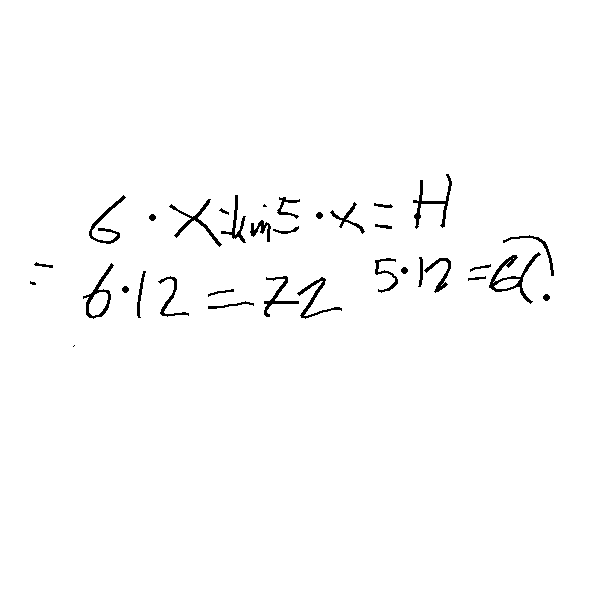 6 · x = km 5 · x = H
= 6·12 = 72 5·12 = 60.